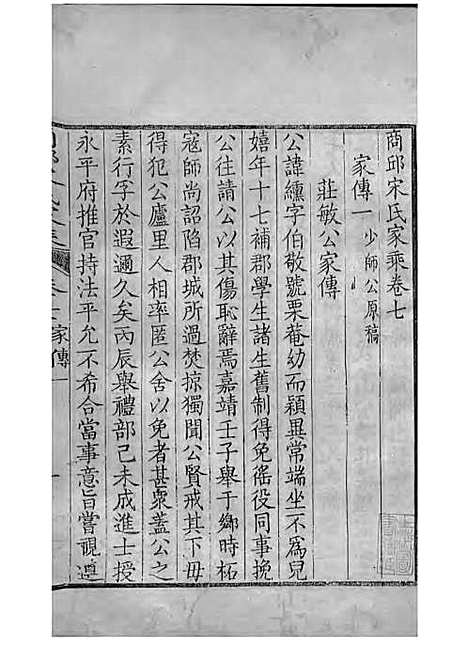 商邱宋氏家乘卷七
家傳一 少師公原稿
莊敏公家傳
公諱纁字伯敬號栗菴幼而穎異常端坐不為兒
嬉年十七補郡學生諸生舊制得免徭役同事挽
公往請公以其傷恥辭焉嘉靖壬子舉于鄉時柘
寇師尚詔陷郡城所過焚掠獨聞公賢戒其下毋
得犯公廬里人相率匿公舍以免者甚衆蓋公之
素行孚於遐邇久矣丙辰舉禮部己未成進士授
永平府推官持法平允不希合當事意旨嘗視遵
家傳一